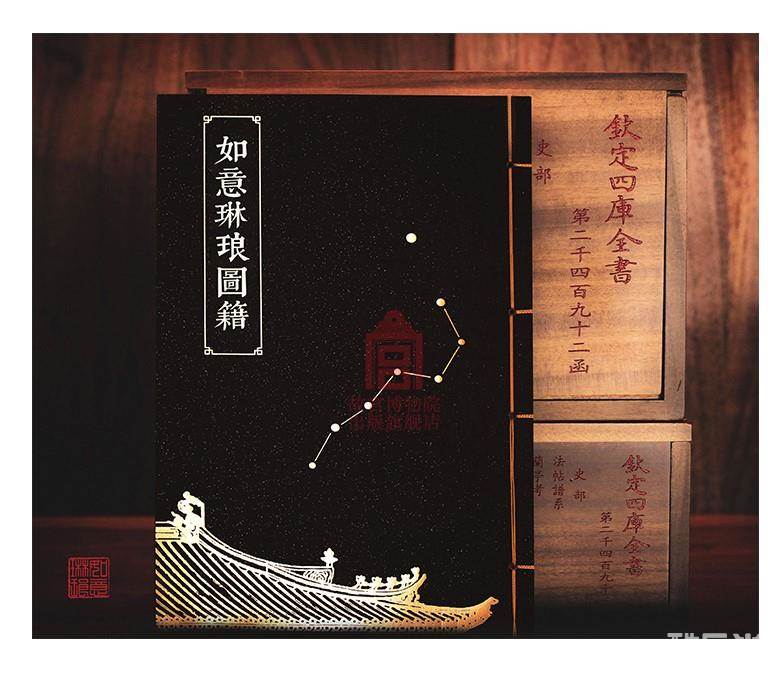 如意琳琅圖籍
欽定四庫全書
史部
第二千四百九十二函
故宫博物院
出版旗舰店
欽定四庫全書
史部
法帖譜系
蘭亭考
第二千四百九十
如意琳琅